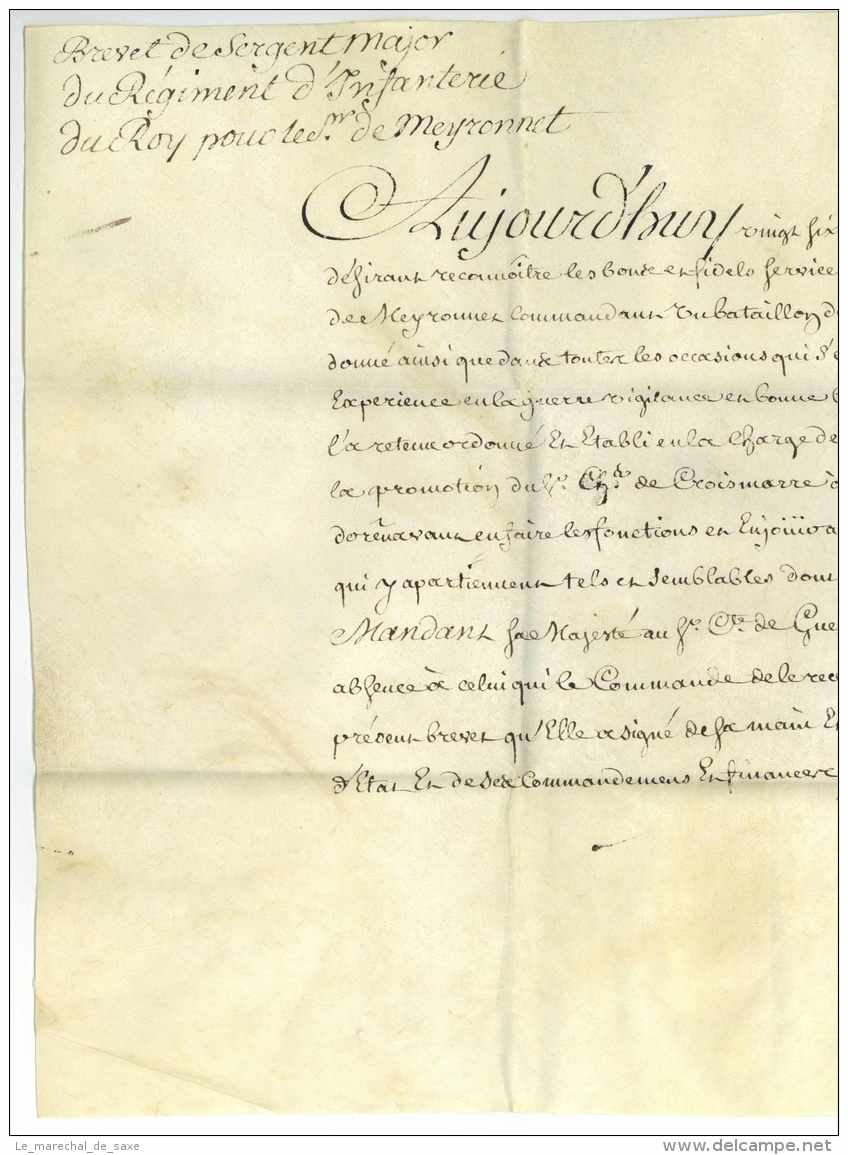 Brevet de Sergent Major
du Régiment d'Infanterie
du Roy pour le Sr. de Meyronnet
Aujourd'huy vingt six
désirant reconnoître les bons et fidels service
de Meyronnet Commandant un bataillon d
donné ainsi que dans toutes les occasions qui s'e
Experience en la guerre vigilance et bonne
l'a retenu ordonné Et Etabli en la Charge de
la promotion du Sr. Cher. de Croismarre
dorénavant en faire les fonctions et En joüi
qui y apartiennent tels et semblables dont
Mandant sa Majesté au Sr. Cte. de Gue
absence à celui qui le Commande de le rec
présent brevet qu'Elle a signé de sa main Et
d'Etat Et de ses Commandemens Et finances
Le_marechal_de_saxe
www.delcampe.net